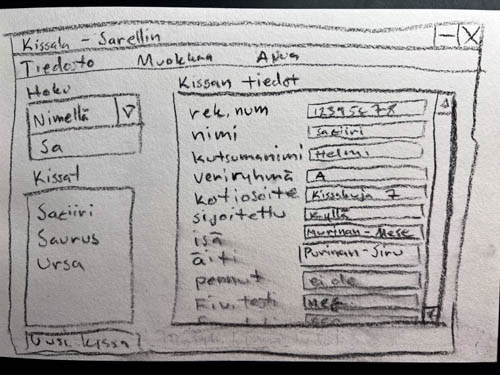 Kissala - Sarellin
Tiedosto Muokkaa Apua
Haku
Nimellä
Sa
Kissat
Satiiri
Saurus
Ursa
Uusi kissa
Kissan tiedot
rek. num 12345678
nimi Satiiri
kutsumanimi Helmi
veriryhmä A
kotiosoite Kissakuja 7
sijoitettu Kyllä
isä Murinan-Mese
äiti Purinan-Siru
pennut ei ole
Fiv. testi neg